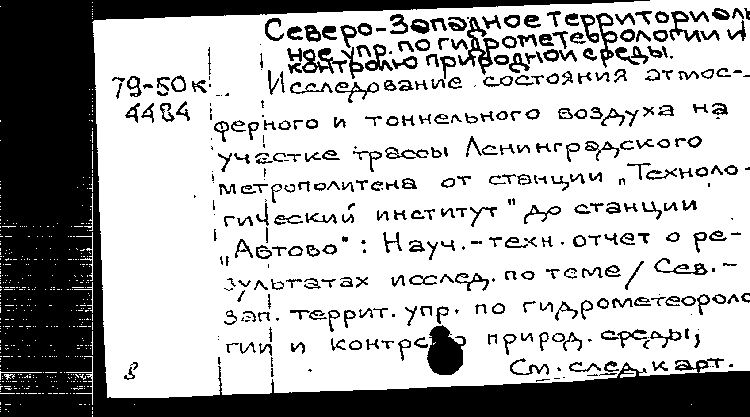 Северо-Западное территориаль
ное упр. по гидрометеорологии и
контролю природной среды.
79-50к
4484
Исследование состояния атмос-
ферного и тоннельного воздуха на
участке трассы Ленинградского
метрополитена от станции „Техноло-
гический институт" до станции
„Автово": Науч.-техн. отчет о ре-
зультатах исслед. по теме / Сев.-
зап. террит. упр. по гидрометеороло
гии и контролю природ. среды;
в
См. след. карт.